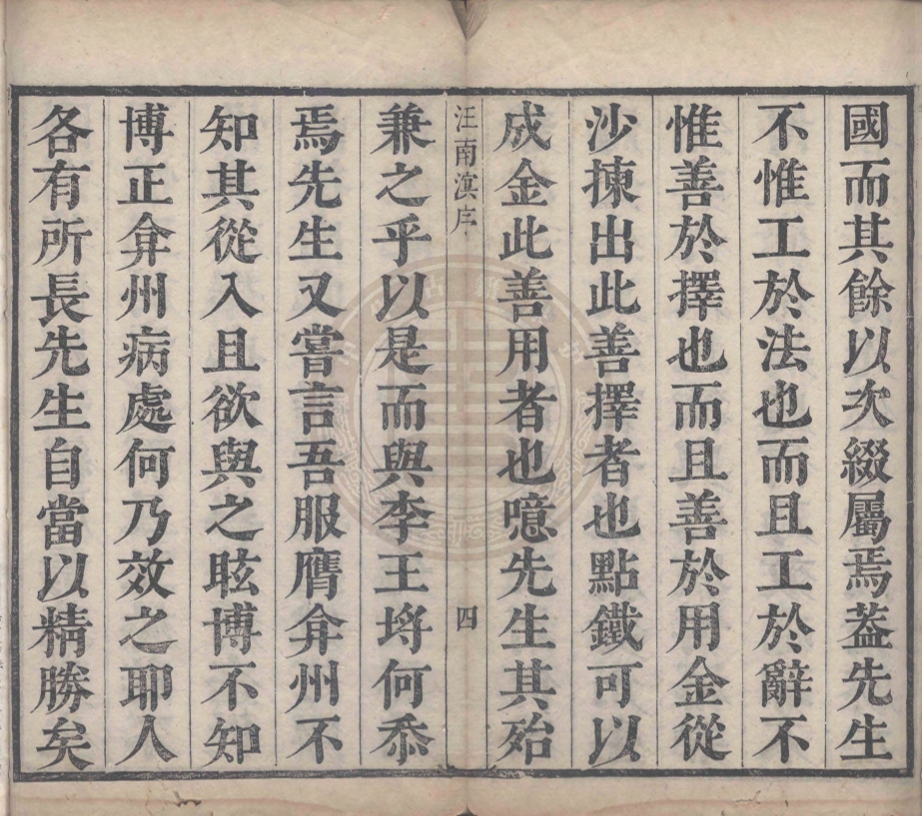 國而其餘以次綴屬焉葢先生
不惟工於法也而且工於辭不
惟善於擇也而且善於用金從
沙揀出此善擇者也點鐵可以
成金此善用者也噫先生其殆
汪南溟序
四
兼之乎以是而與李王埒何忝
焉先生又嘗言吾服膺弇州不
知其從入且欲與之眩博不知
博正弇州病處何乃效之耶人
各有所長先生自當以精勝矣